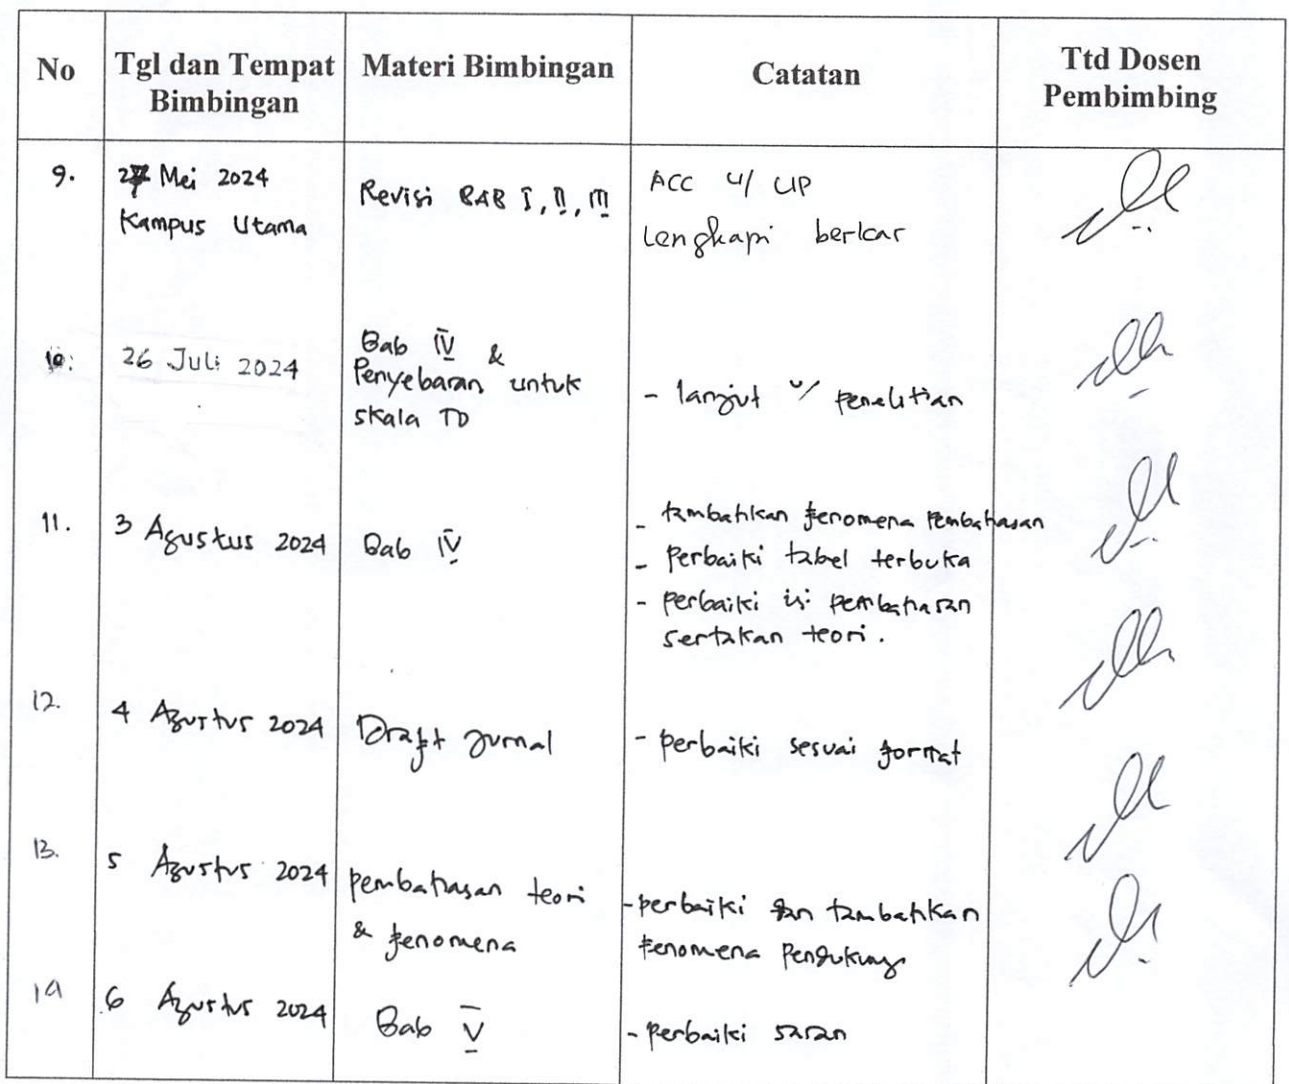 No
Tgl dan Tempat
Bimbingan
Materi Bimbingan
Catatan
Ttd Dosen
Pembimbing
9.
27 Mei 2024
Kampus Utama
Revisi BAB I, II, III
ACC u/ UP
Lengkapi berkar
10.
26 Juli 2024
Bab IV &
Penyebaran untuk
skala TD
- lanjut u/ penelitian
11.
3 Agustus 2024
Bab IV
- tambahkan fenomena Pembahasan
- Perbaiki tabel terbuka
- perbaiki isi pembahasan
sertakan teori.
12.
4 Agustus 2024
Draft Jurnal
- perbaiki sesuai format
13.
5 Agustus 2024
pembahasan teori
& fenomena
- perbaiki dan tambahkan
fenomena Pendukung
14
6 Agustus 2024
Bab V
- perbaiki saran